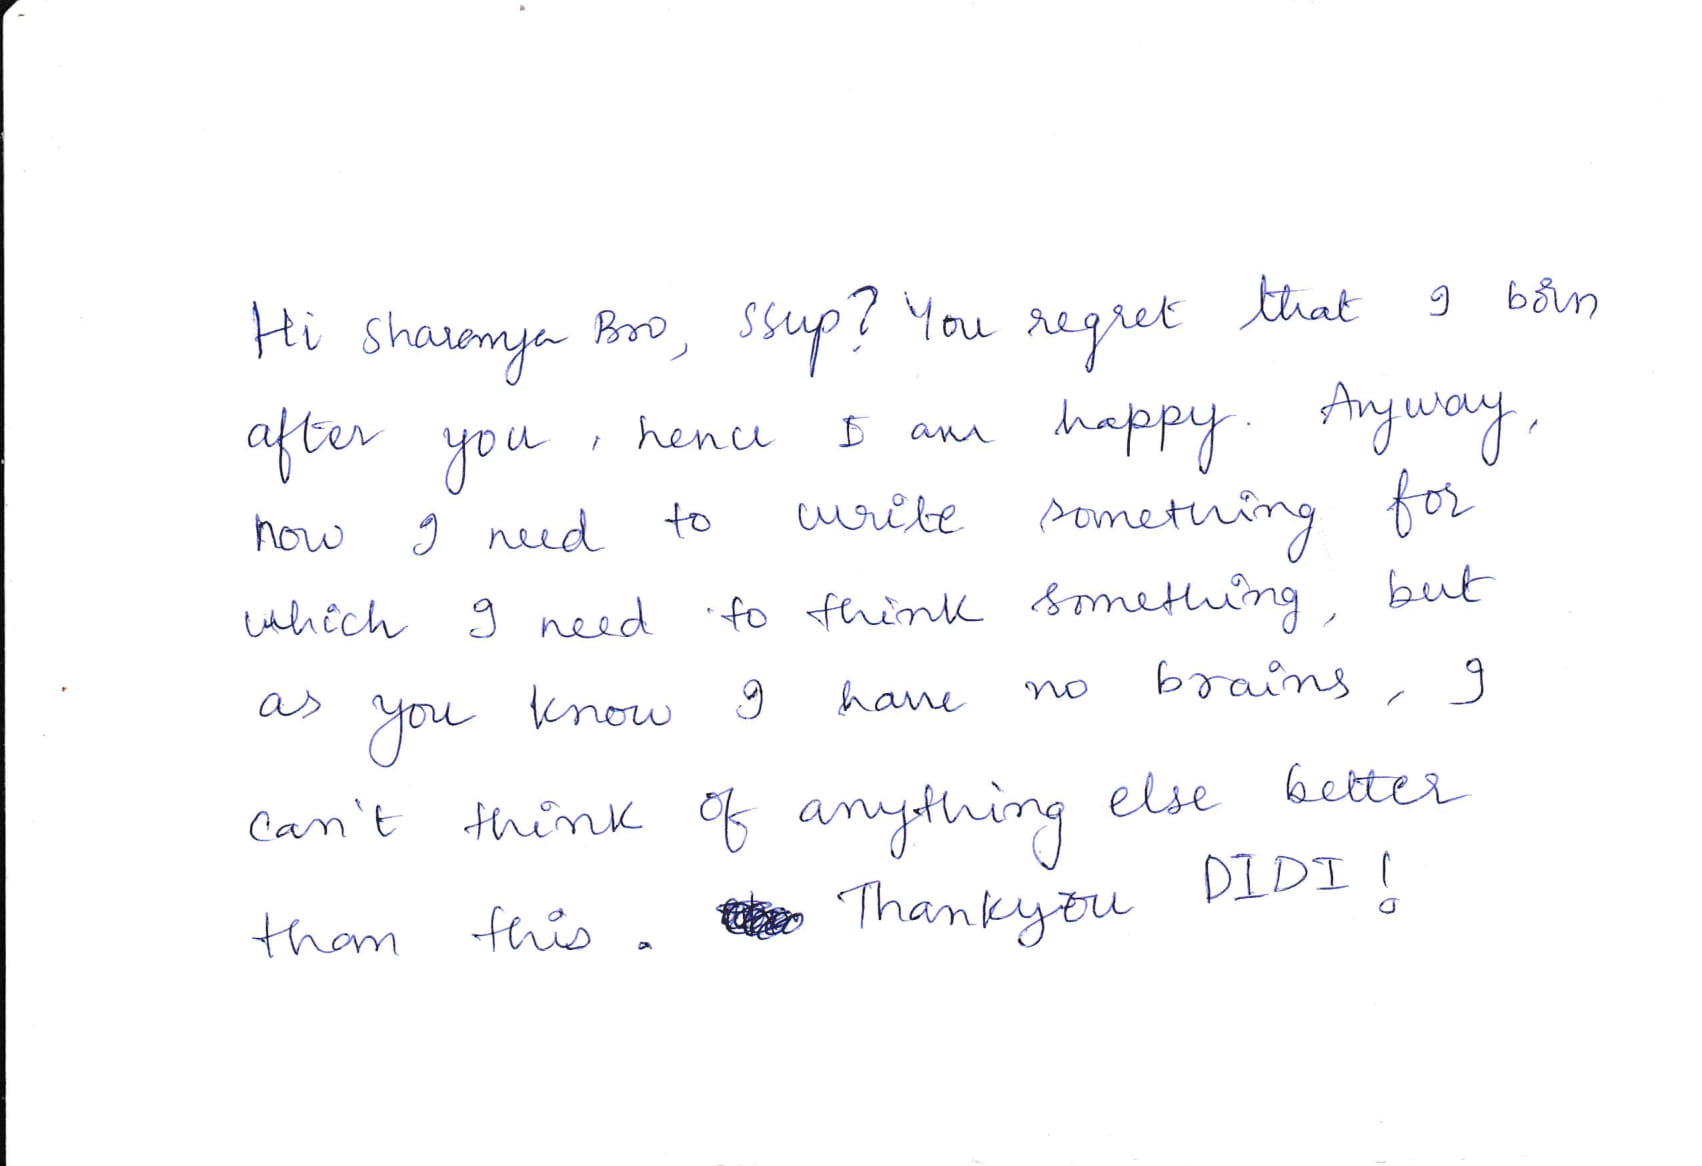 Hi Sharenya Bro, ssup? You regret that I born
after you, hence I am happy. Anyway,
now I need to write something for
which I need to think something, but
as you know I have no brains, I
can't think of anything else better
than this. Thankyou DIDI!